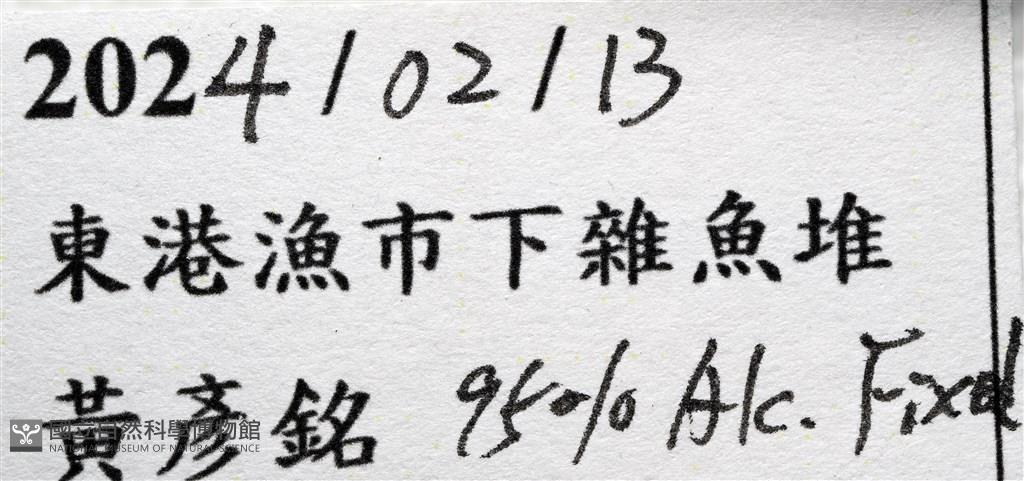 2024/02/13
東港漁市下雜魚堆
黃彥銘 95% Alc. Fixed
國立自然科學博物館
NATIONAL MUSEUM OF NATURAL SCIENCE